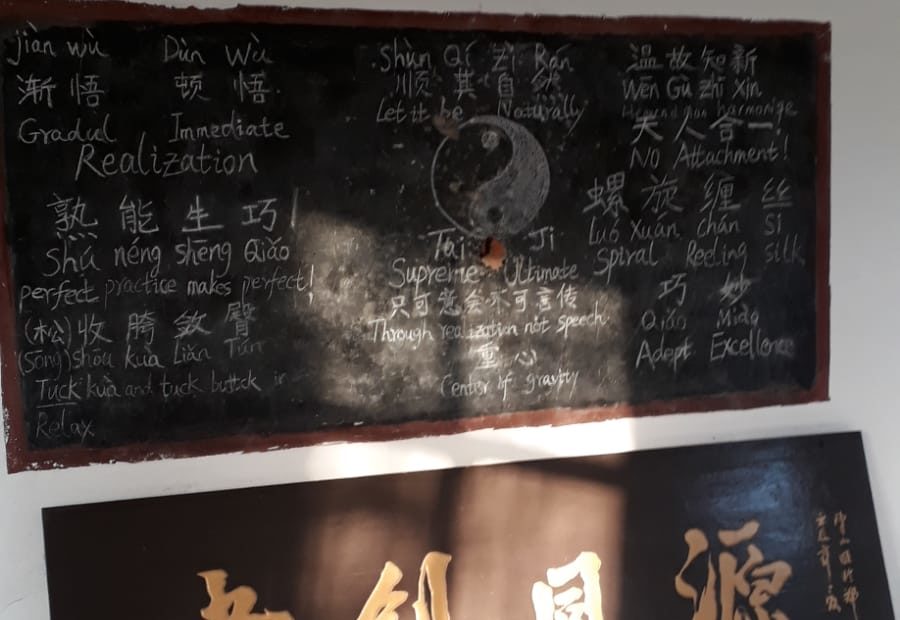 jiàn wù Dùn Wù
渐 悟 顿 悟
Gradul Immediate
Realization
熟 能 生 巧!
Shú néng shēng Qiǎo
perfect practice makes perfect!
(松)收 胯 敛 臀
(Sōng) shōu kuà Liǎn Tún
Tuck kuà and tuck buttck in
Relax
Shùn Qí Zì Rán
顺 其 自 然
Let it be Naturally
Tai Ji
Supreme Ultimate
只可意会不可言传
Through realization not speech.
重 心
Center of gravity
温 故 知 新
Wēn Gù zhī xīn
harmonize
天 人 合 一!
NO Attachment!
螺 旋 缠 丝
Luó Xuán chán Si
Spiral Reeling silk
巧 妙
Qiǎo Miào
Adept Excellence
同 源